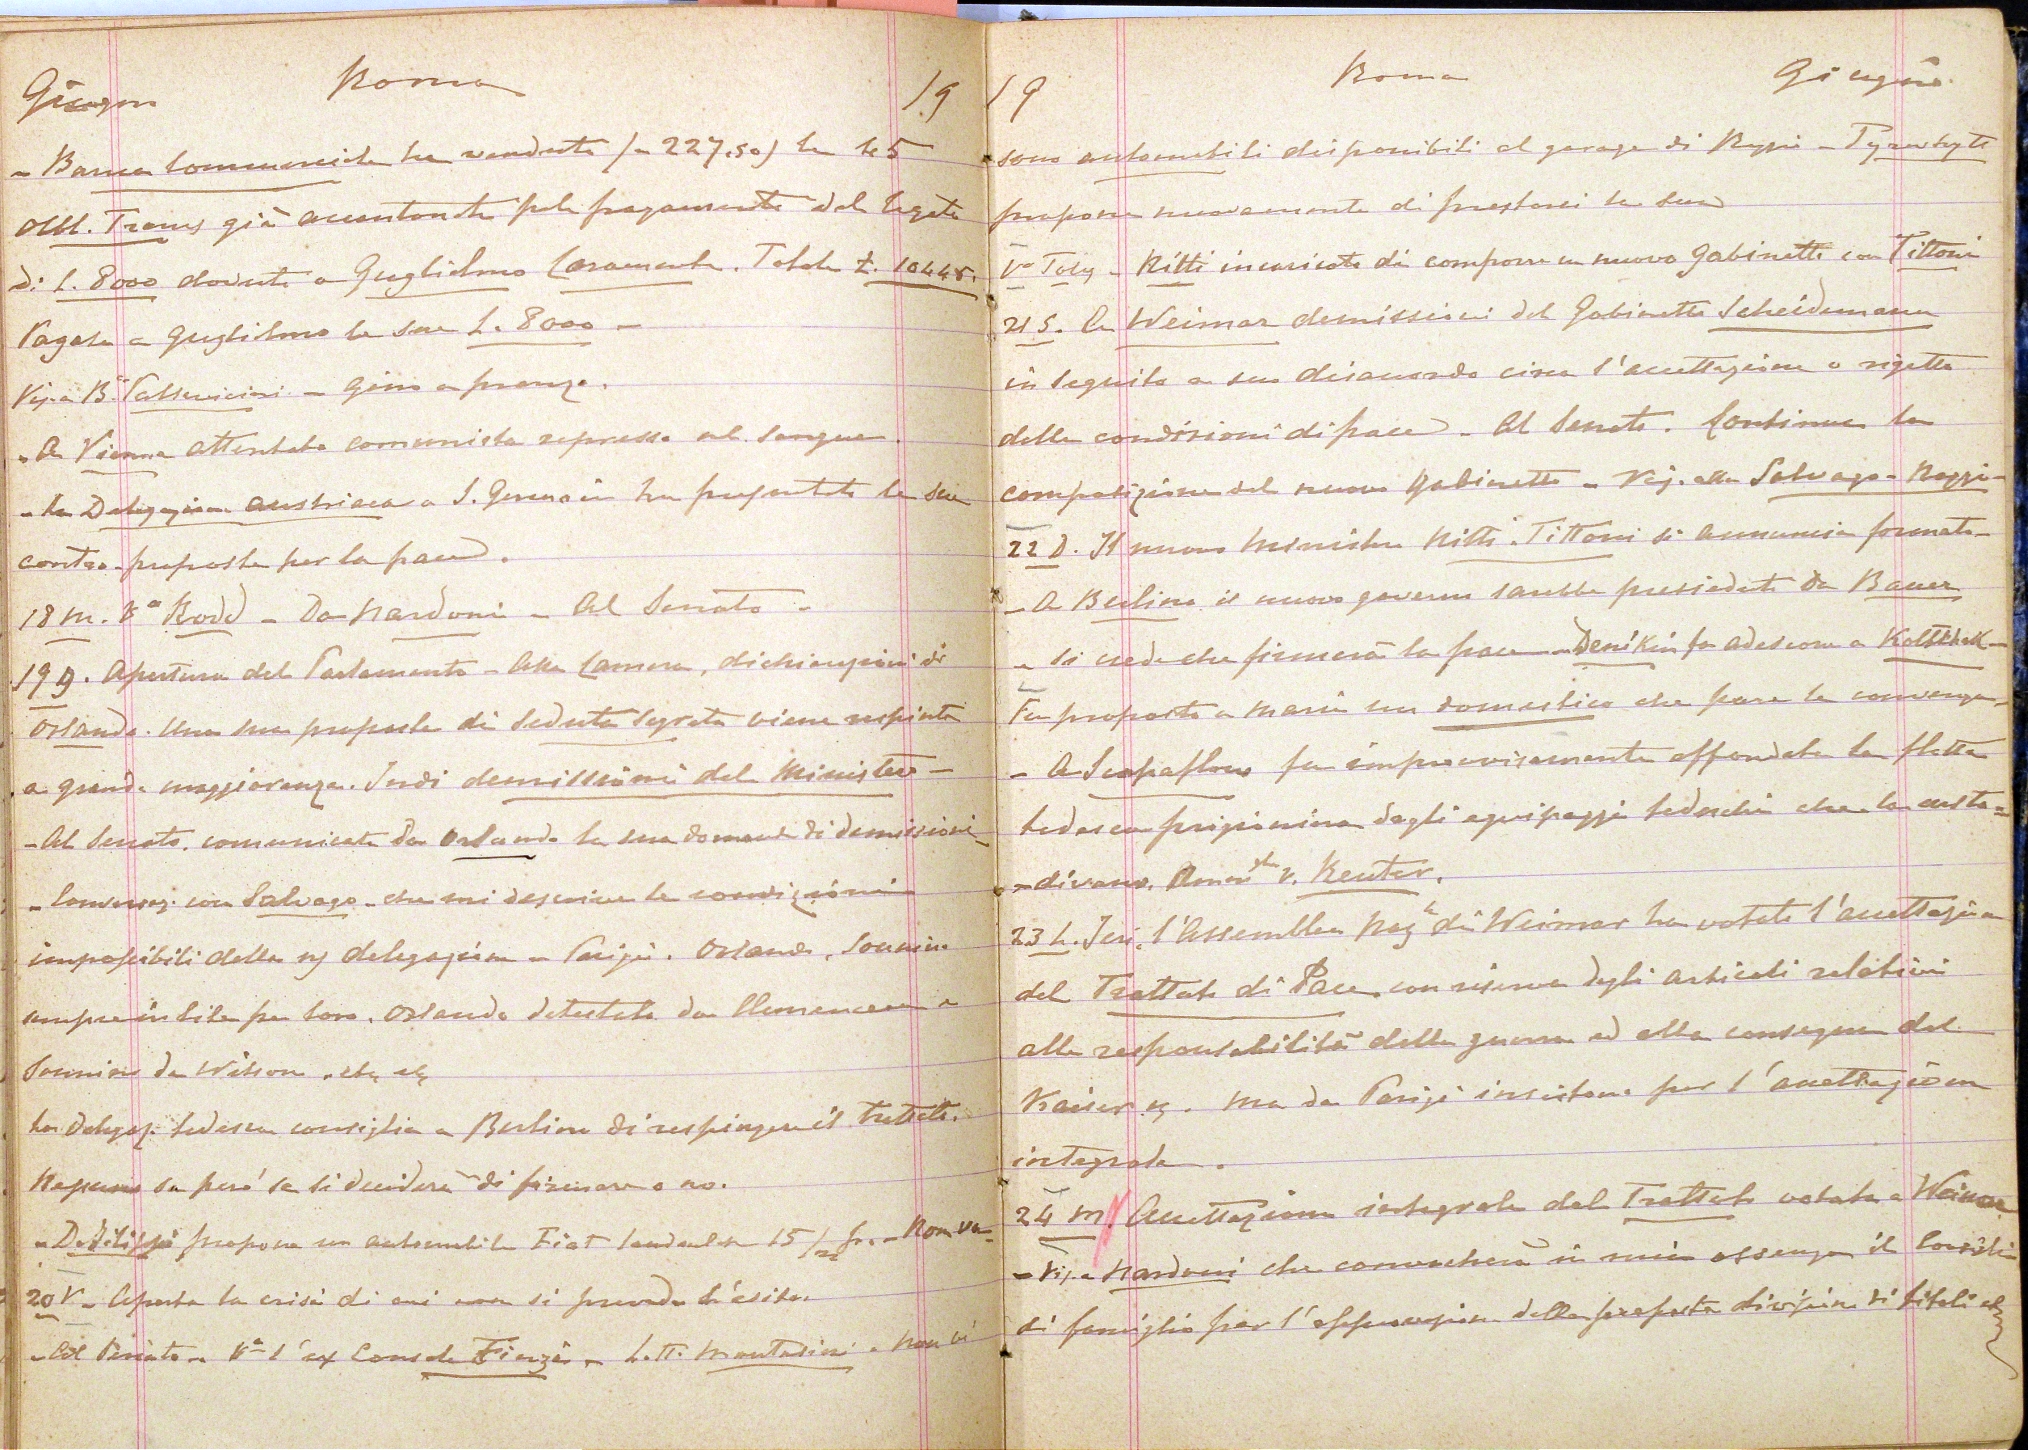 Giugno Roma 19
- Banca Commerciale ha venduto (a 227.50) le 45
Obl. Trams già accantonate pel pagamento del legato
di L. 8000 dovuto a Guglielmo Caramente. Totale L. 10445.
Pagate a Guglielmo le sue L. 8000 -
Vis. a B. Pallavicini - Gino a pranzo.
- A Vienna attentato comunista represso nel sangue.
- La Delegazione austriaca a S. Germain ha presentato le sue
contro-proposte per la pace.
18 M. Va Rodd - Da Nardoni - Al Senato -
19 G. Apertura del Parlamento - Alla Camera, dichiarazioni di
Orlando. Una sua proposta di seduta segreta viene respinta
a grande maggioranza. Indi demissioni del Ministero -
- Al Senato, comunicate da Orlando la sua domanda di demissioni -
- Conversaz. con Salvago - che mi descrive le condizioni
impossibili della ns delegazione a Parigi. Orlando, Sonnino
sempre in lite fra loro. Orlando detestato da Clemenceau e
Sonnino da Wilson, etc etc
La delegaz. tedesca consiglia a Berlino di respingere il trattato.
Nessuno sa però se si deciderà di firmare o no.
- De Filippi propone un automobile Fiat landaulet 15/20 fr. - Non va -
20 V. - Aperta la crisi di cui non si prevede l'esito.
- Al Senato - Va l'ex Console Finzi - Lett. Montasini - Non vi
19 Roma Giugno
sono automobili disponibili al garage di Reggio - Peyron
propone nuovamente di prestarci la sua
Va Toly - Nitti incaricato di comporre un nuovo Gabinetto con Tittoni
21 S. A Weimar demissioni del Gabinetto Scheidemann
in seguito a suo disaccordo circa l'accettazione o rigetto
delle condizioni di pace - Al Senato. Continua la
composizione del nuovo Gabinetto - Vis. alla Salvago-Raggi -
22 D. Il nuovo Ministero Nitti-Tittoni si annuncia formato -
- A Berlino il nuovo governo sarebbe presieduto da Bauer
- Si crede che firmerà la pace - Denikin fa adesione a Koltchak -
Fu proposto a Maria un domestico che pare le convenga -
- A Scapaflow fu improvvisamente affondata la flotta
tedesca prigioniera dagli equipaggi tedeschi che la custo-
-divano. Amm. v. Reuter.
23 L. Ieri, l'Assemblea Naz.le di Weimar ha votato l'accettazione
del Trattato di Pace, con riserva degli articoli relativi
alla responsabilità della guerra ed alla consegna del
Kaiser. Ma da Parigi insistono per l'accettazione
integrale.
24 M. Accettazione integrale del Trattato votata a Weimar
- Vis. a Nardoni che convocherà in mia assenza il Consiglio
di famiglia per l'approvazione della proposta divisione di titoli etc